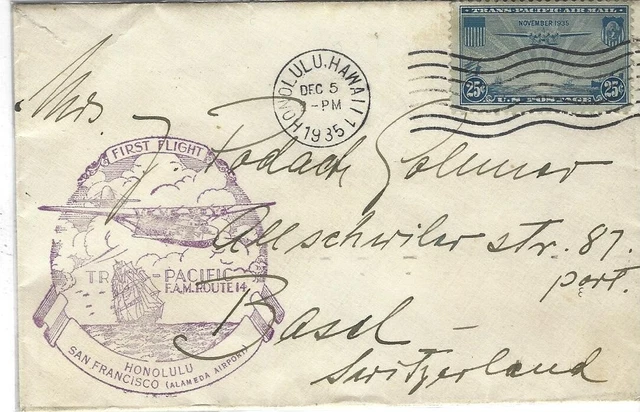 TRANS-PACIFIC AIR MAIL
NOVEMBER 1935
25¢ 25¢
U.S. POSTAGE
HONOLULU, HAWAII
DEC 5
-PM
1935
1
Mrs.
FIRST FLIGHT
Allschwiler str. 87.
port.
TRANS-PACIFIC
F.A.M. ROUTE 14
Basel -
Switzerland
HONOLULU
SAN FRANCISCO (ALAMEDA AIRPORT)